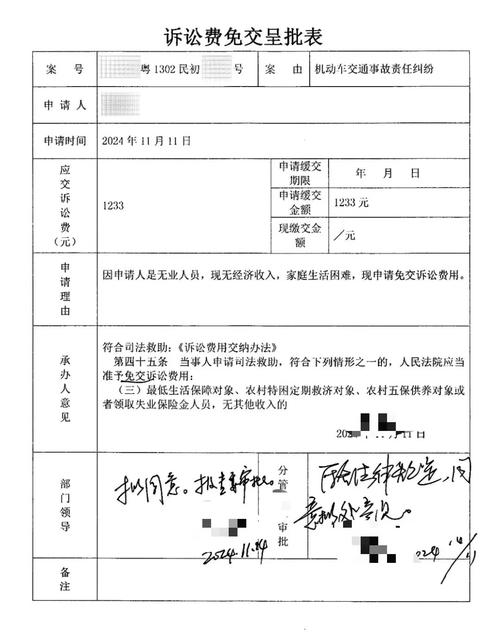 诉讼费免交呈批表
案 号 粤1302民初 号 案 由 机动车交通事故责任纠纷
申 请 人
申请时间 2024年11月11日
应交诉讼费(元) 1233 申请缓交期限 年 月 日
申请缓交金额 1233元
现缴交金额 /元
申请理由 因申请人是无业人员，现无经济收入，家庭生活困难，现申请免交诉讼费用。
承办人意见 符合司法救助：《诉讼费用交纳办法》
第四十五条 当事人申请司法救助，符合下列情形之一的，人民法院应当
准予免交诉讼费用：
（三）最低生活保障对象、农村特困定期救济对象、农村五保供养对象或
者领取失业保险金人员，无其他收入的
11月11日
部门领导 拟同意。报 审批。
2024.11.14
分管 审批 同
意
备注